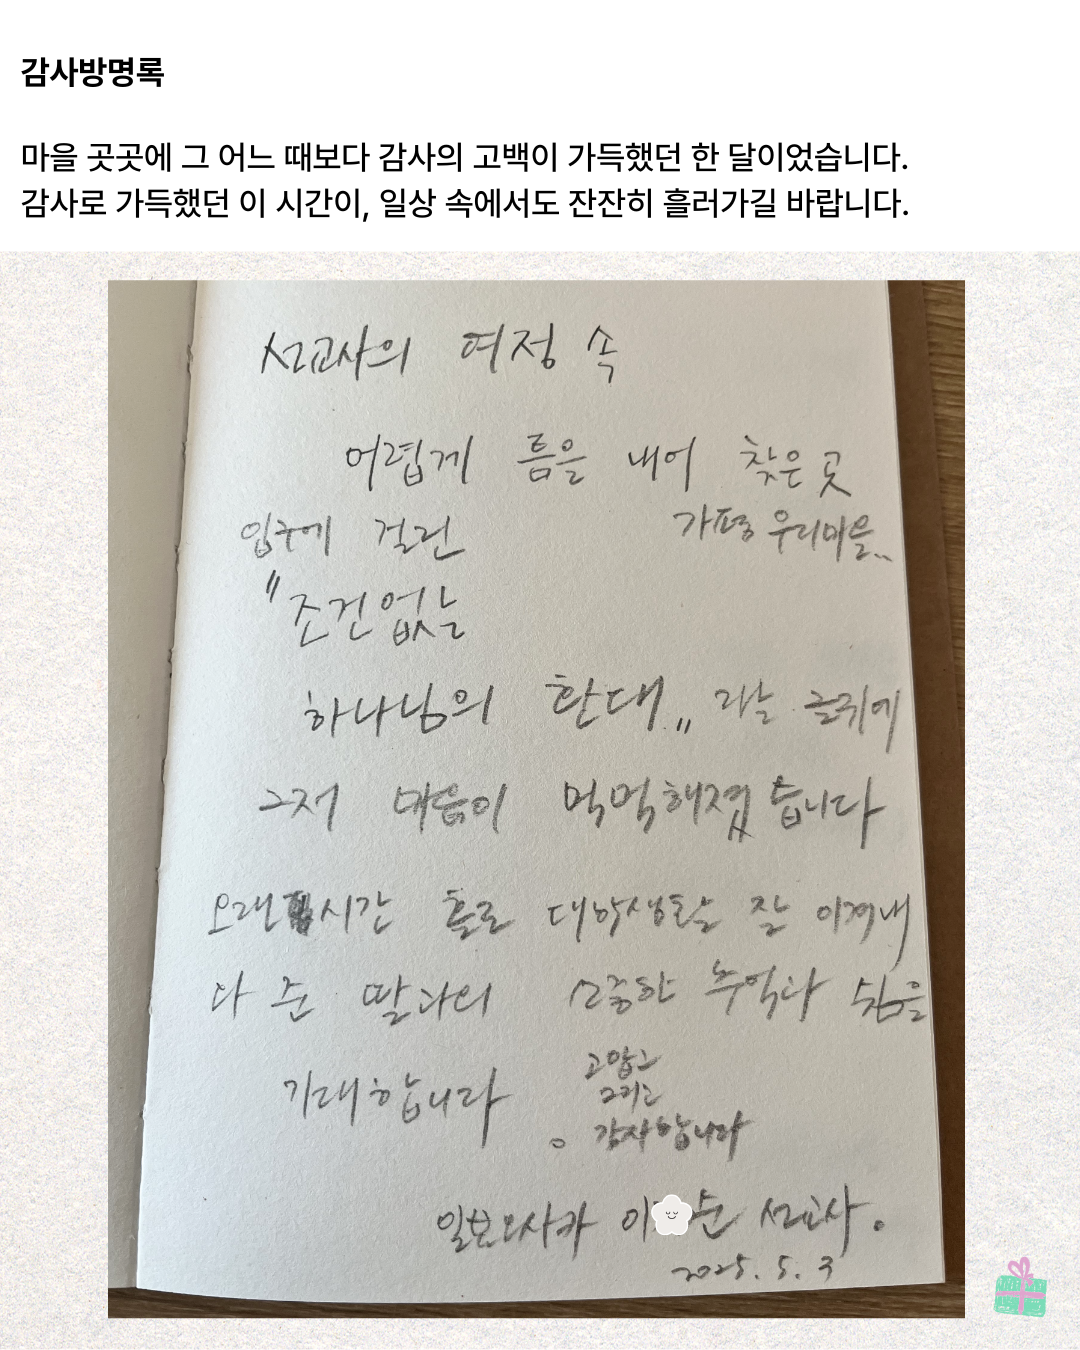 감사방명록
마을 곳곳에 그 어느 때보다 감사의 고백이 가득했던 한 달이었습니다.
감사로 가득했던 이 시간이, 일상 속에서도 잔잔히 흘러가길 바랍니다.
선교사의 여정 속
어렵게 틈을 내어 찾은 곳
가평 우리마을..
입구에 걸린
"조건없는
하나님의 환대" 라는 글귀에
그저 마음이 먹먹해졌습니다
오랜 시간 홀로 대학생활을 잘 이겨내
다 준 딸과의 소중한 추억과 쉼을
기대합니다.
고맙고
그리고
감사합니다
일본오사카 이 순 선교사.
2025. 5. 3